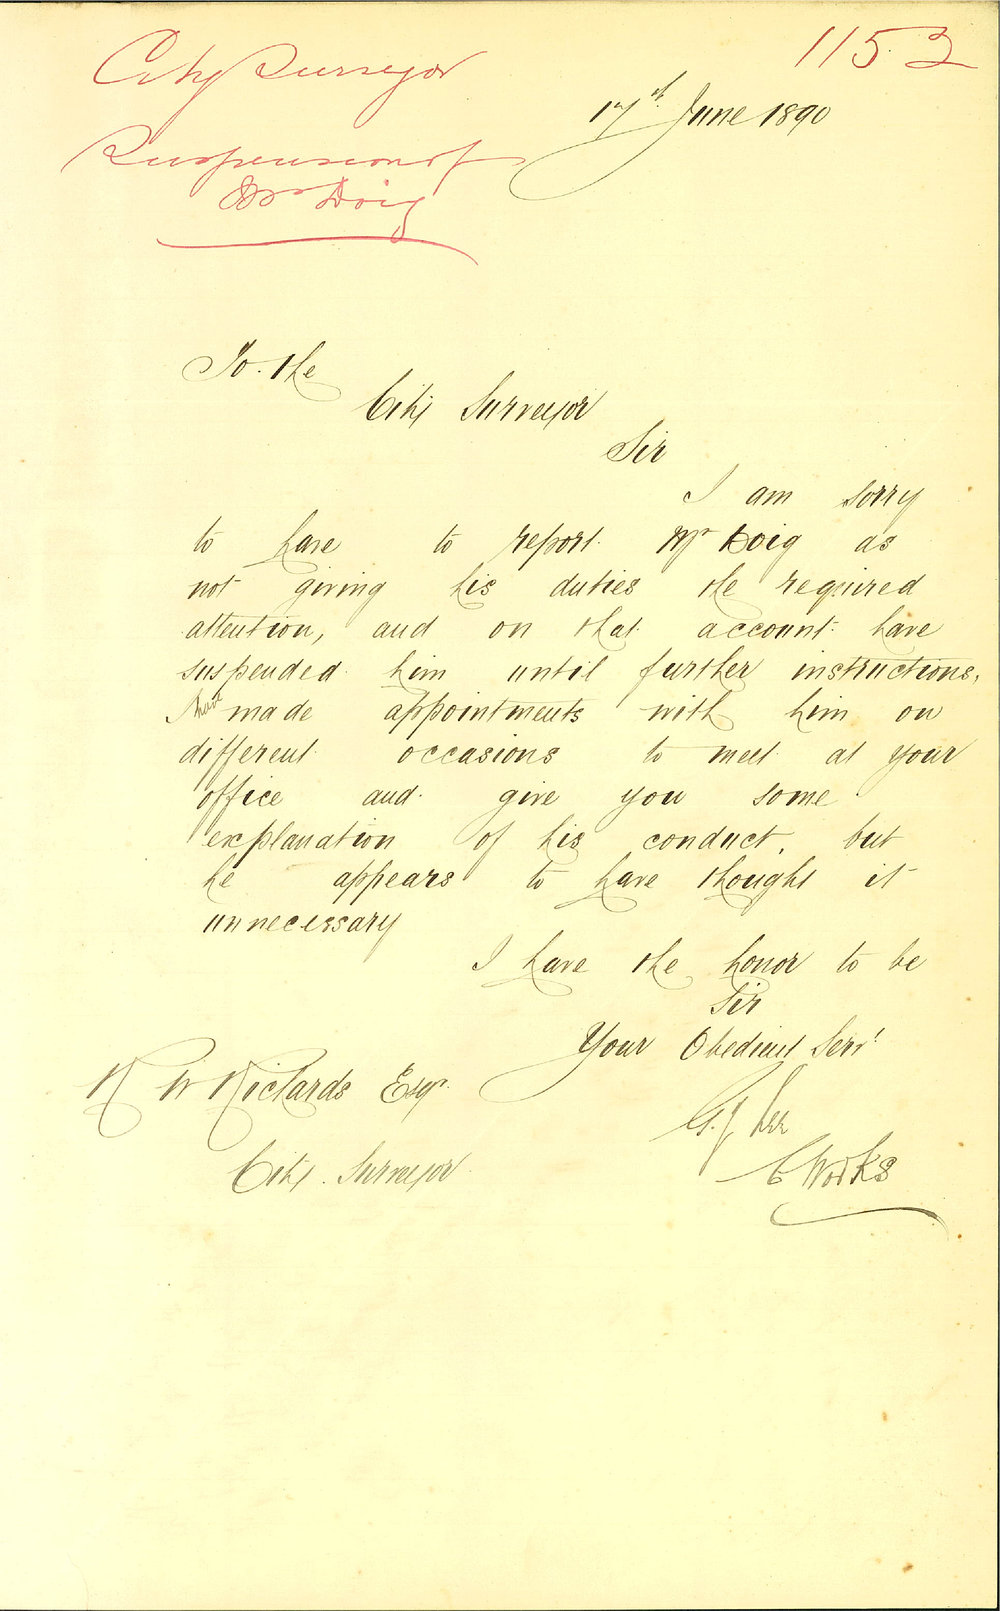 City Surveyor
1153
17th June 1890
Suspension of
Mr Doig
To. the
City Surveyor
Sir
I am sorry
to have to report Mr Doig as
not giving his duties the required
attention, and on that account have
suspended him until further instructions,
I have made appointments with him on
different occasions to meet at your
office and give you some
explanation of his conduct, but
he appears to have thought it
unnecessary
I have the honor to be
Sir
Your Obedient Servt
R W Richards Esqr
G. J Lee
City Surveyor
C Works